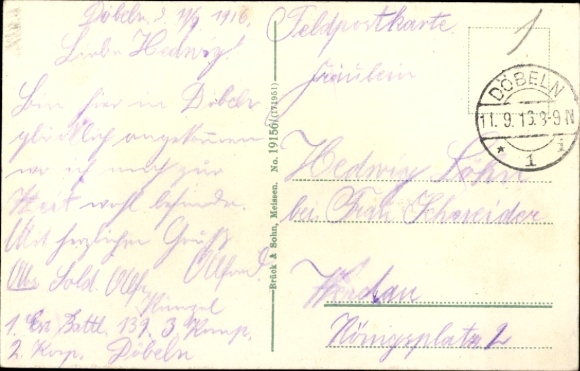 Döbeln, d. 11/9 1916.
Liebe Hedwig!
Bin hier in Döbeln
glücklich angekommen
wo ich mich zur
Zeit wohl befinde.
Mit herzlichen Gruß
Alfred.
Abs. Sold. Alfr.
1. Ers. Battl. 139. 3 Komp.
2. Korp. Döbeln
Brück & Sohn, Meissen. No. 19156 (171951)
Feldpostkarte.
1
Fräulein
DÖBELN
11.9.16.8-9N
* 1 i
Hedwig
bei Frau Schneider
Königsplatz 2